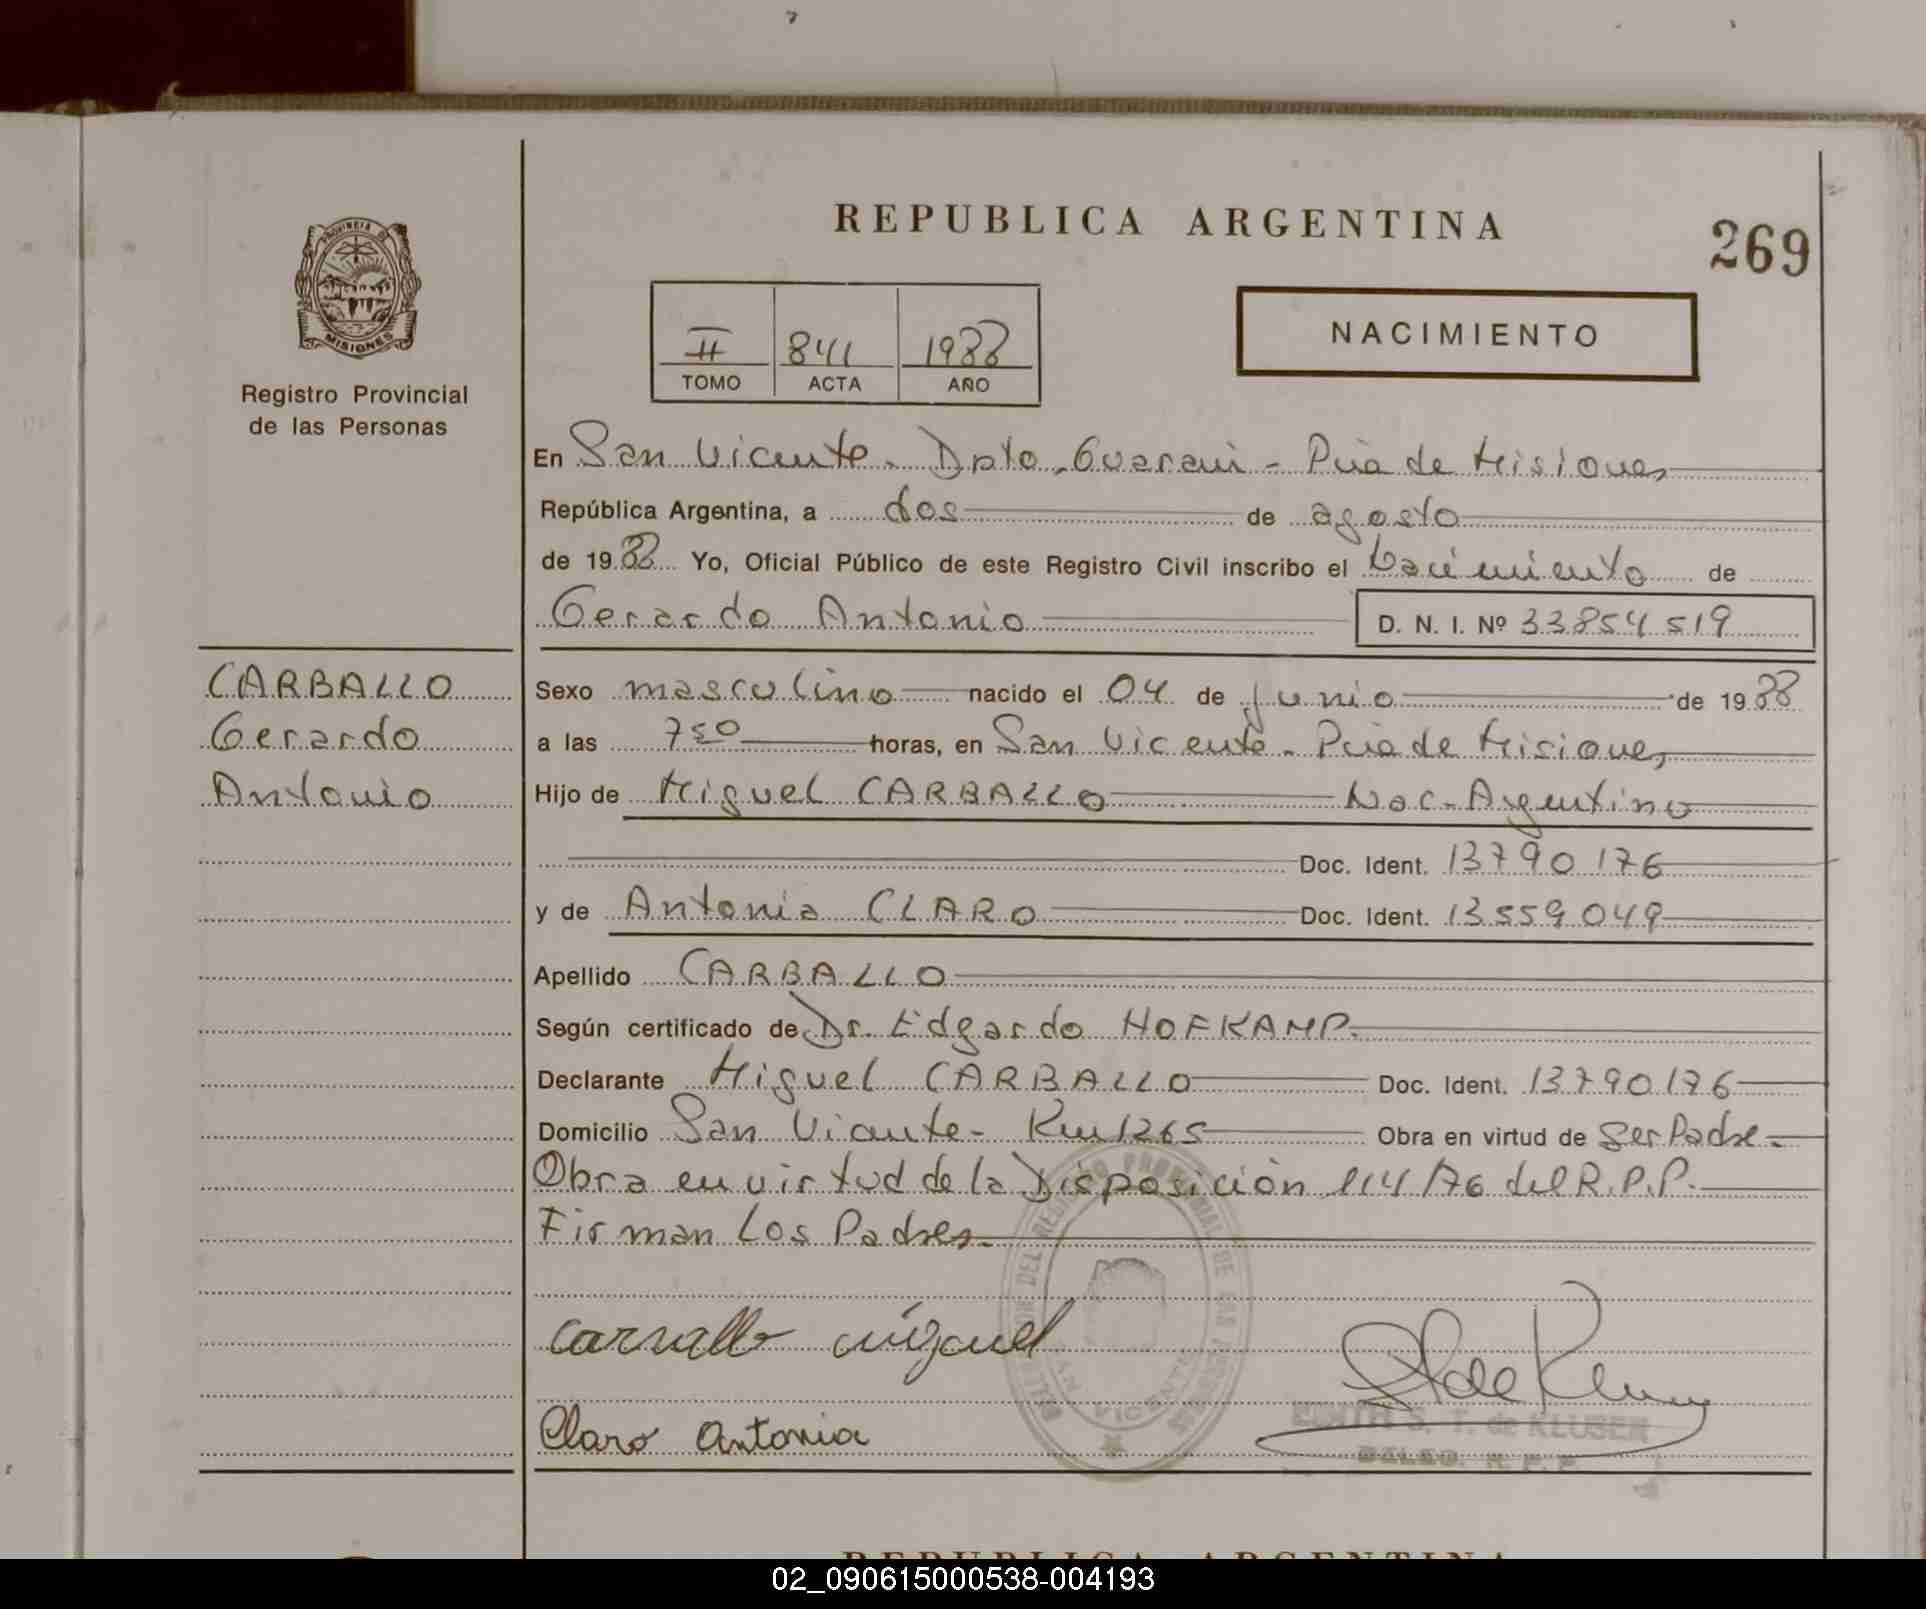 REPUBLICA ARGENTINA
269
PROVINCIA DE
MISIONES
Registro Provincial
de las Personas
II 841 1988
TOMO ACTA AÑO
NACIMIENTO
En San Vicente - Dpto. Guarani - Pcia de Misiones
República Argentina, a dos de agosto
de 1988 Yo, Oficial Público de este Registro Civil inscribo el Nacimiento de
Gerardo Antonio D. N. I. Nº 33854519
CARBALLO
Gerardo
Antonio
Sexo masculino nacido el 04 de Junio de 1988
a las 7 50 horas, en San Vicente - Pcia de Misiones
Hijo de Miguel CARBALLO Nac. Argentino
Doc. Ident. 13790176
y de Antonia CLARO Doc. Ident. 13559049
Apellido CARBALLO
Según certificado de Dr. Edgardo HOFKAMP.
Declarante Miguel CARBALLO Doc. Ident. 13790176
Domicilio San Vicente - Km 1265 Obra en virtud de Ser Padre -
Obra en virtud de la Disposición 114/76 del R.P.P.
Firman Los Padres.
DEL REGISTRO PROVINCIAL DE LAS PERSONAS
SAN VICENTE
Carvallo Miguel
Claro Antonia
EDITH S. T. de KLUSER
R. P. P.
REPUBLICA ARGENTINA
02_090615000538-004193